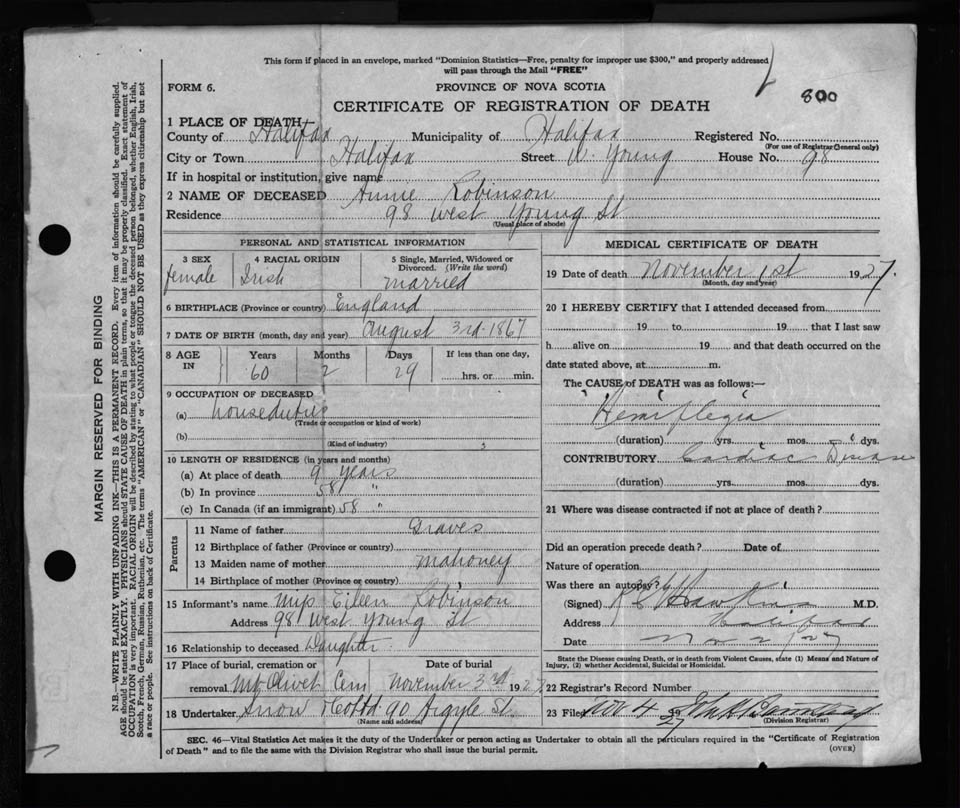 This form if placed in an envelope, marked "Dominion Statistics—Free, penalty for improper use $300," and properly addressed
will pass through the Mail "FREE"
800
FORM 6.
PROVINCE OF NOVA SCOTIA
CERTIFICATE OF REGISTRATION OF DEATH
1 PLACE OF DEATH—
County of Halifax Municipality of Halifax Registered No.
(For use of Registrar General only)
City or Town Halifax Street W. Young House No. 98
If in hospital or institution, give name
2 NAME OF DECEASED Annie Robinson
Residence 98 West Young St
(Usual place of abode)
PERSONAL AND STATISTICAL INFORMATION
3 SEX 4 RACIAL ORIGIN 5 Single, Married, Widowed or Divorced. (Write the word)
female Irish married
6 BIRTHPLACE (Province or country) England
7 DATE OF BIRTH (month, day and year) August 3rd 1867
8 AGE IN Years Months Days If less than one day,
60 2 29 hrs. or min.
9 OCCUPATION OF DECEASED
(a) houseduties
(Trade or occupation or kind of work)
(b)
(Kind of industry)
3
10 LENGTH OF RESIDENCE (in years and months)
(a) At place of death 9 years
(b) In province 58 "
(c) In Canada (if an immigrant) 58 "
Parents
11 Name of father Graves
12 Birthplace of father (Province or country)
13 Maiden name of mother Mahoney
14 Birthplace of mother (Province or country)
15 Informant's name Miss Eileen Robinson
Address 98 West Young St
16 Relationship to deceased Daughter
17 Place of burial, cremation or Date of burial
removal Mt Olivet Cem November 3rd 1927
18 Undertaker Snow & Co Ltd 90 Argyle St.
(Name and address)
MEDICAL CERTIFICATE OF DEATH
19 Date of death November 1st 1927.
(Month, day and year)
20 I HEREBY CERTIFY that I attended deceased from
19 to 19 that I last saw
h alive on 19 and that death occurred on the
date stated above, at m.
The CAUSE of DEATH was as follows:—
Hemiplegia
(duration) yrs. mos. dys.
CONTRIBUTORY Cardiac Disease
(duration) yrs. mos. dys.
21 Where was disease contracted if not at place of death?
Did an operation precede death? Date of
Nature of operation
Was there an autopsy?
(Signed) M.D.
Address Halifax
Date Nov 2/27
State the Disease causing Death, or in death from Violent Causes, state (1) Means and Nature of
Injury, (2) whether Accidental, Suicidal or Homicidal.
22 Registrar's Record Number
23 Filed Nov 4 27
(Division Registrar)
SEC. 46—Vital Statistics Act makes it the duty of the Undertaker or person acting as Undertaker to obtain all the particulars required in the "Certificate of Registration
of Death" and to file the same with the Division Registrar who shall issue the burial permit.
(OVER)
MARGIN RESERVED FOR BINDING
N.B.—WRITE PLAINLY WITH UNFADING INK—THIS IS A PERMANENT RECORD. Every item of information should be carefully supplied.
AGE should be stated EXACTLY. PHYSICIANS should STATE CAUSE OF DEATH in plain terms, so that it may be properly classified. Exact statement of
OCCUPATION is very important. RACIAL ORIGIN will be described by stating to what people or tongue the deceased person belonged, whether English, Irish,
Scotch, French, German, Russian, Ruthenian, etc. The terms "AMERICAN" or "CANADIAN" SHOULD NOT BE USED as they express citizenship but not
a race or people. See instructions on back of Certificate.